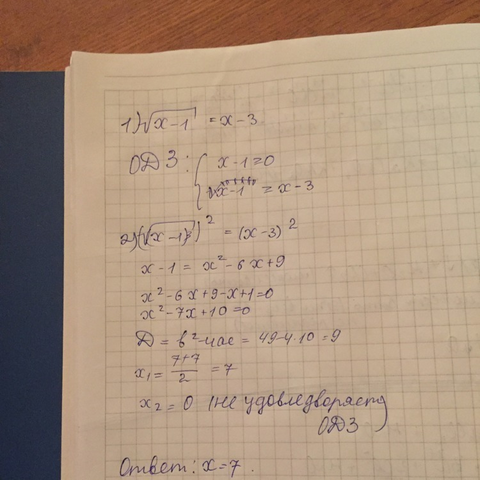 1) √x-1 = x-3.
ОДЗ: { x-1=0
√x-1 = x-3
2) (√x-1)² = (x-3)²
x-1 = x²-6x+9
x²-6x+9-x+1=0
x²-7x+10=0
Д = в²-4ас = 49-4·10=9
x₁= 7+7/2 =7
x₂=0 (не удовледворяет)
ОДЗ
Ответ: x=7.